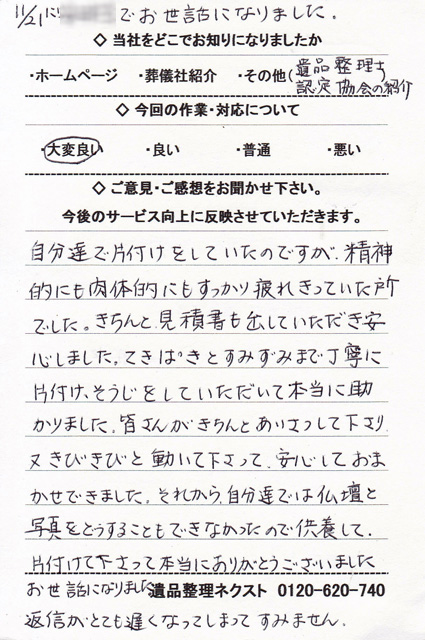 11/21に でお世話になりました.
◇ 当社をどこでお知りになりましたか
・ホームページ ・葬儀社紹介 ・その他(遺品整理士
認定協会の紹介)
◇ 今回の作業・対応について
・大変良い ・良い ・普通 ・悪い
◇ ご意見・ご感想をお聞かせ下さい。
今後のサービス向上に反映させていただきます。
自分達で片付けをしていたのですが、精神
的にも肉体的にもすっかり疲れきっていた所
でした。きちんと見積書も出していただき安
心しました。てきぱきとすみずみまで丁寧に
片付け、そうじをしていただいて本当に助
かりました。皆さんがきちんとあいさつして下さり、
又きびきびと動いて下さって、安心しておま
かせできました。それから、自分達では仏壇と
写真をどうすることもできなかったので供養して、
片付けて下さって本当にありがとうございました
お世話になりました 遺品整理ネクスト 0120-620-740
返信がとても遅くなってしまってすみません.